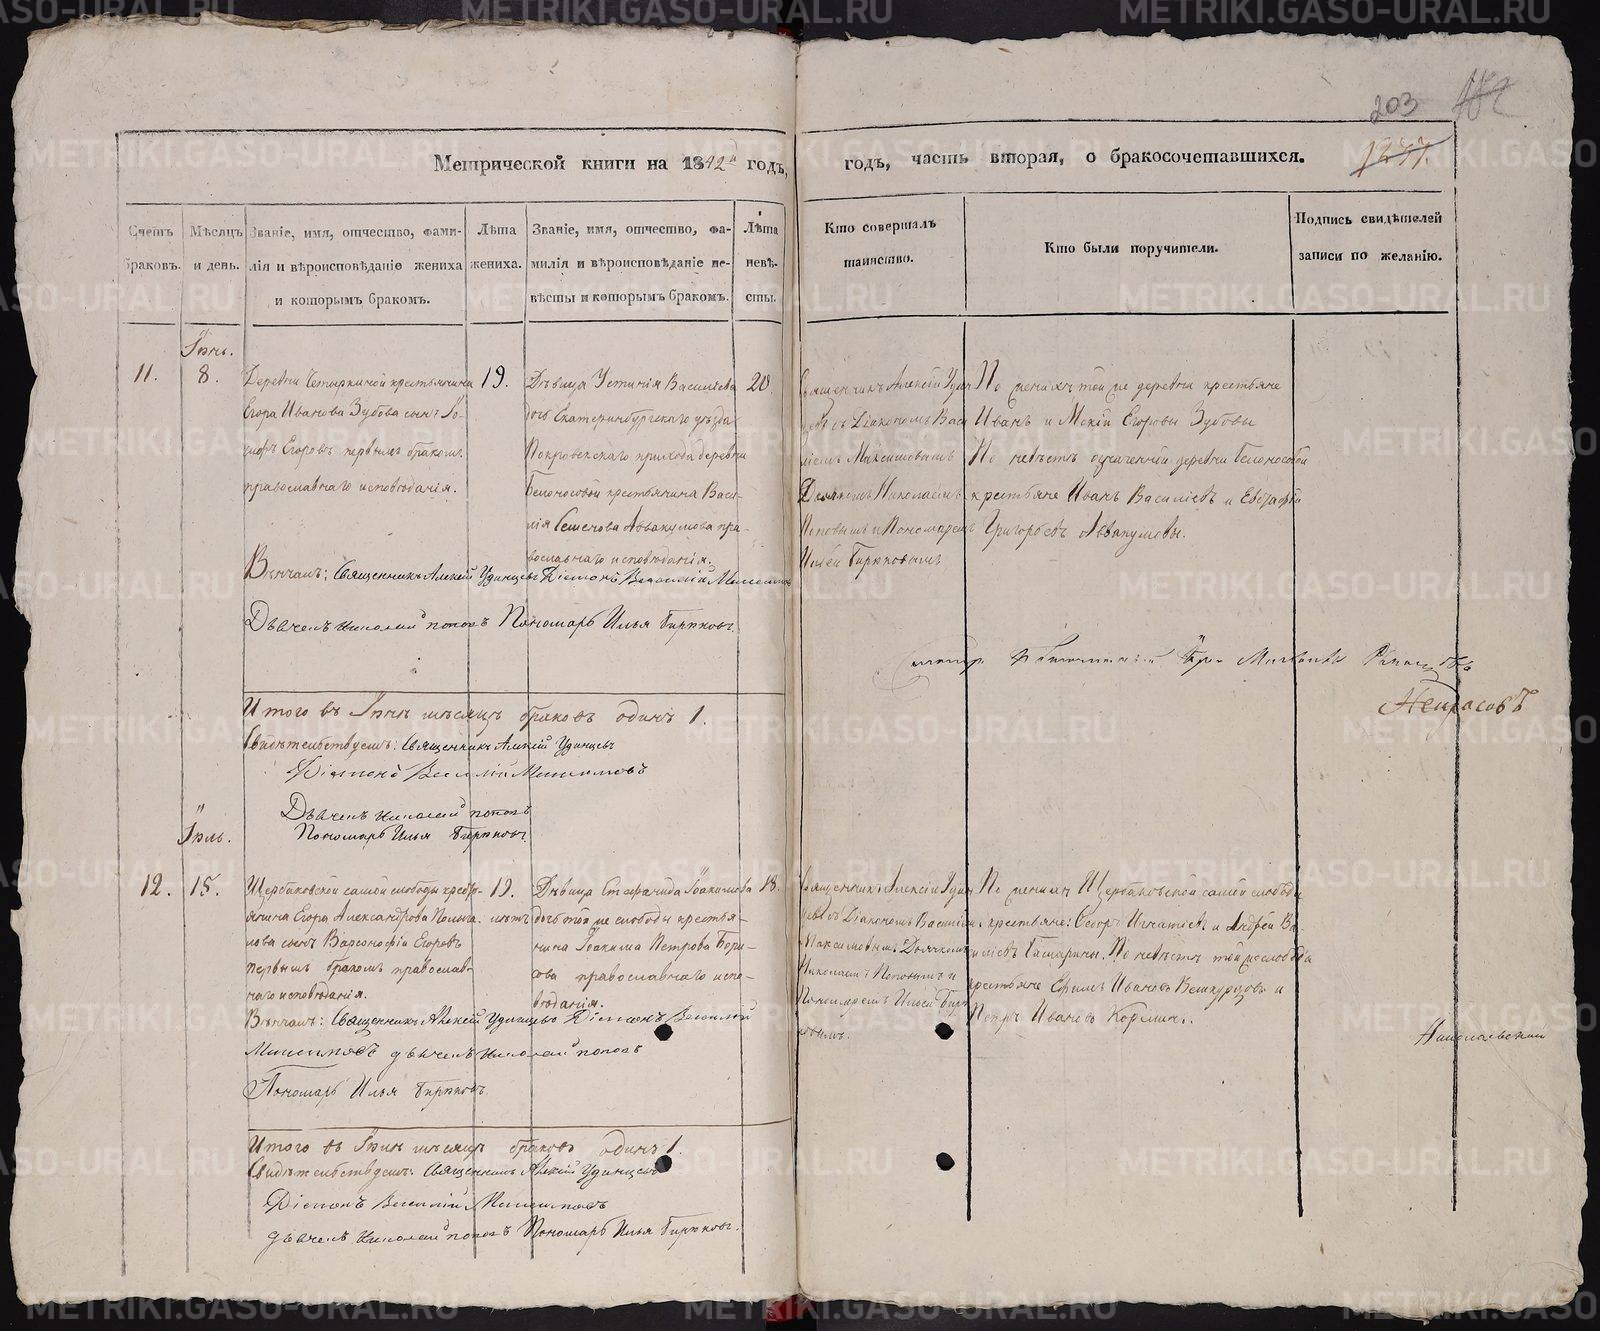 203
1237.
Метрической книги на 1842й годъ,
годъ, часть вторая, о бракосочетавшихся.
Счетъ браковъ.
Мѣсяцъ и день.
Званіе, имя, отчество, фами-
лія и вѣроисповѣданіе жениха
и которымъ бракомъ.
Лѣта
жениха.
Званіе, имя, отчество, фа-
милія и вѣроисповѣданіе не-
вѣсты и которымъ бракомъ.
Лѣта
невѣ-
сты.
Кто совершалъ
таинство.
Кто были поручители.
Подпись свидѣтелей
записи по желанію.
Іюнь.
11.
8.
Деревни крестьянина
Егора Иванова Зубова сынъ Іо-
сифъ Егоровъ первымъ бракомъ
православнаго исповѣданія.
19.
Дѣвица Устинія Васильева
дочь Екатеринбургскаго уѣзда
Покровскаго прихода деревни
Белоносовой крестьянина Васи-
лія Семенова Аввакумова пра-
вославнаго исповѣданія.
20.
Священникъ Алексій Удин
цевъ съ Діакономъ Васи
ліемъ Максимовымъ
Дьячкомъ Николаемъ
Поповымъ и Пономаремъ
Ильей Бирюковымъ
По женихѣ той же деревни крестьяне
Иванъ и Мокій Егоровы Зубовы
По невѣстѣ означенной деревни Белоносовой
крестьяне Иванъ Василіевъ и Евграфій
Григорьевъ Аввакумовы.
Вѣнчали: Священникъ Алексій Удинцевъ Діаконъ Василій Максимовъ
Дьячекъ Николай Поповъ Пономарь Илья Бирюковъ.
Некрасовъ
Итого въ Іюнѣ мѣсяцѣ браковъ одинъ 1.
Свидѣтельствуемъ: Священникъ Алексій Удинцевъ
Діаконъ Василій Максимовъ
Дьячекъ Николай Поповъ
Пономарь Илья Бирюковъ.
Іюль.
12.
15.
Щербаковской самой слободы кресть-
янина Егора Александрова
сынъ Варсонофій Егоровъ
первымъ бракомъ православ-
наго исповѣданія.
19.
лѣтъ
Дѣвица Стефанида Іоакимова
дочь той же слободы крестья-
нина Іоакима Петрова Бори-
сова православнаго испо-
вѣданія.
18.
Священникъ Алексій Удин
цевъ съ Діакономъ Василіемъ
Максимовымъ Дьячкомъ
Николаемъ Поповымъ и
Пономаремъ Ильей Бирю
ковымъ.
По женихѣ Щербаковской самой слободы
крестьяне: Егоръ Игнатіевъ и Андрей Ва-
силіевъ. По невѣстѣ той же слободы
крестьяне Ефимъ Ивановъ и
Петръ Ивановъ
Вѣнчали: Священникъ Алексій Удинцевъ Діаконъ Василій
Максимовъ дьячекъ Николай Поповъ
Пономарь Илья Бирюковъ.
Итого въ Іюлѣ мѣсяцѣ браковъ одинъ 1.
Свидѣтельствуемъ: Священникъ Алексій Удинцевъ
Діаконъ Василій Максимовъ
дьячекъ Николай Поповъ Пономарь Илья Бирюковъ.
METRIKI.GASO-URAL.RU